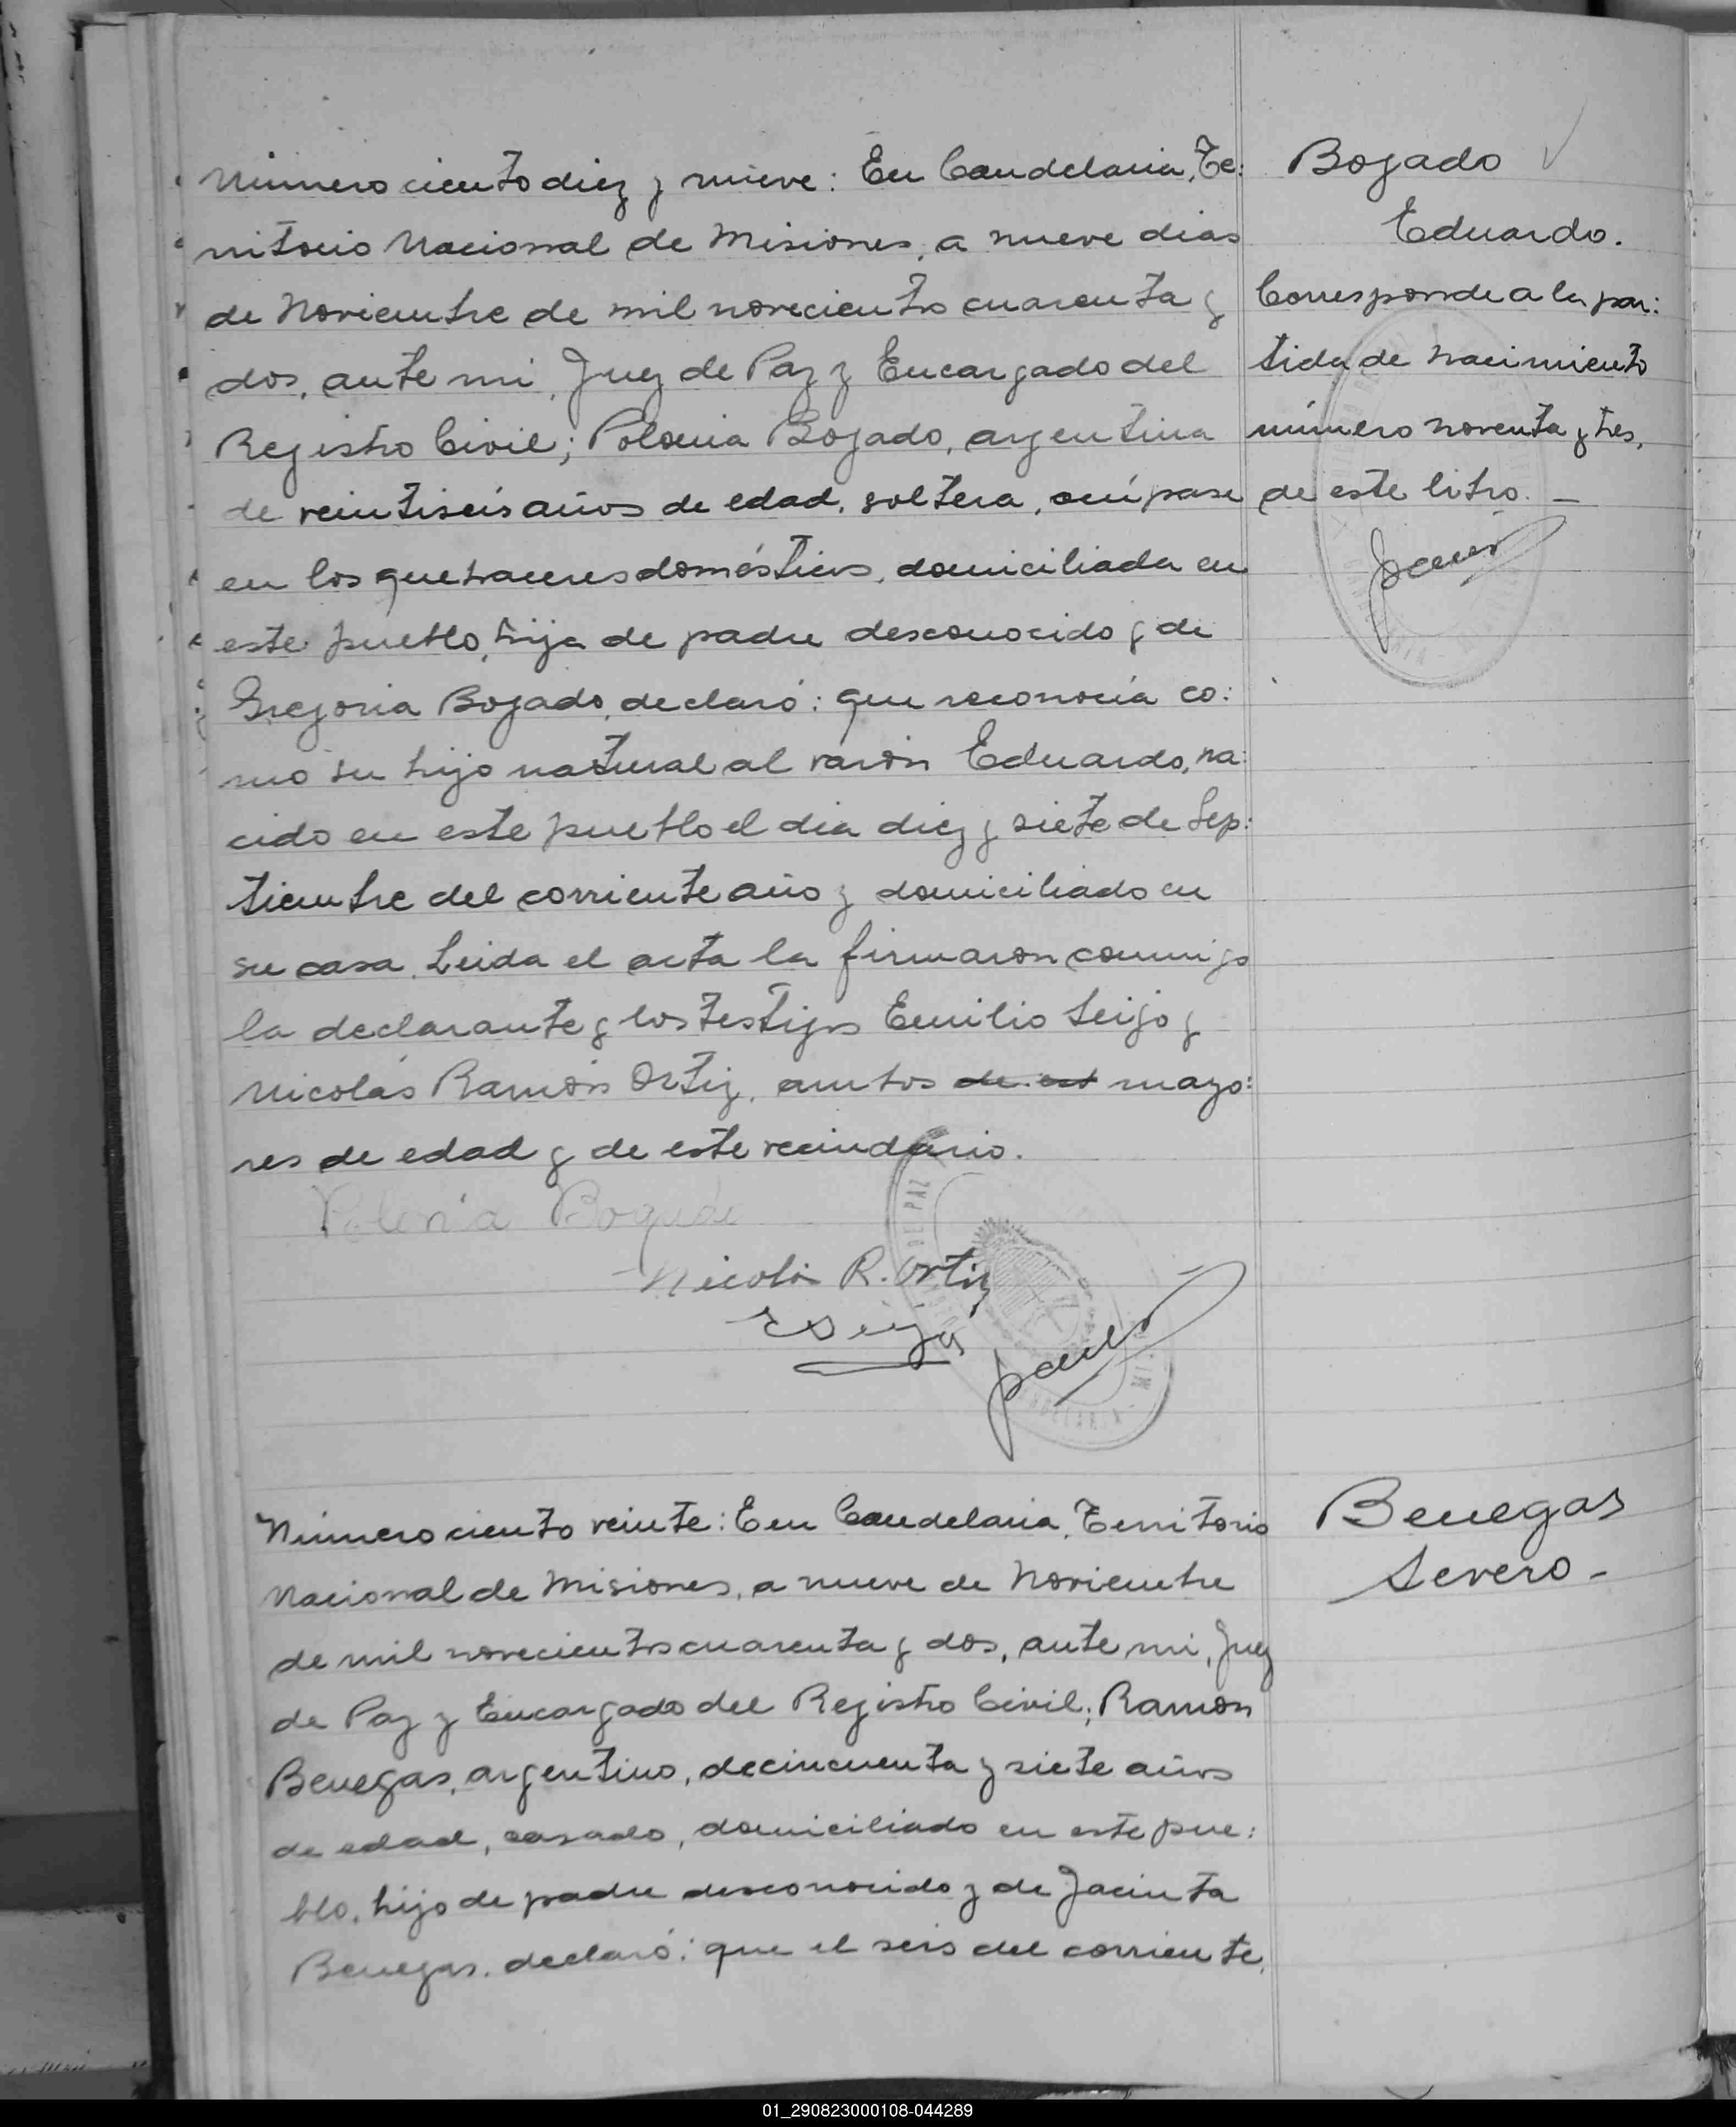 Número ciento diez y nueve: En Candelaria, Te:
rritorio Nacional de Misiones, a nueve dias
de Noviembre de mil novecientos cuarenta y
dos, ante mi, Juez de Paz y Encargado del
Registro Civil; Polonia Bogado, argentina
de veintiseis años de edad, soltera, ocúpase
en los quehaceres domésticos, domiciliada en
este pueblo, hija de padre desconocido y de
Gregoria Bogado, declaró: que reconocía co:
mo su hijo natural al varón Eduardo, na:
cido en este pueblo el dia diez y siete de Sep:
tiembre del corriente año y domiciliado en
su casa. Leida el acta la firmaron conmigo
la declarante y los testigos Emilio Seijo y
Nicolás Ramón Ortiz, ambos de est mayo:
res de edad y de este vecindario.
Bogado
Eduardo.
Corresponde a la par:
tida de nacimiento
número noventa y tres,
de este libro. —
Polonia Bogado
Nicolás R. Ortiz
ESeijo
DE PAZ
Número ciento veinte: En Candelaria, Territorio
Nacional de Misiones, a nueve de Noviembre
de mil novecientos cuarenta y dos, ante mi, Juez
de Paz y Encargado del Registro Civil; Ramón
Benegas, argentino, de cincuenta y siete años
de edad, casado, domiciliado en este pue:
blo, hijo de padre desconocido y de Jacinta
Benegas, declaró: que el seis del corriente,
Benegas
Severo-
01_290823000108-044289